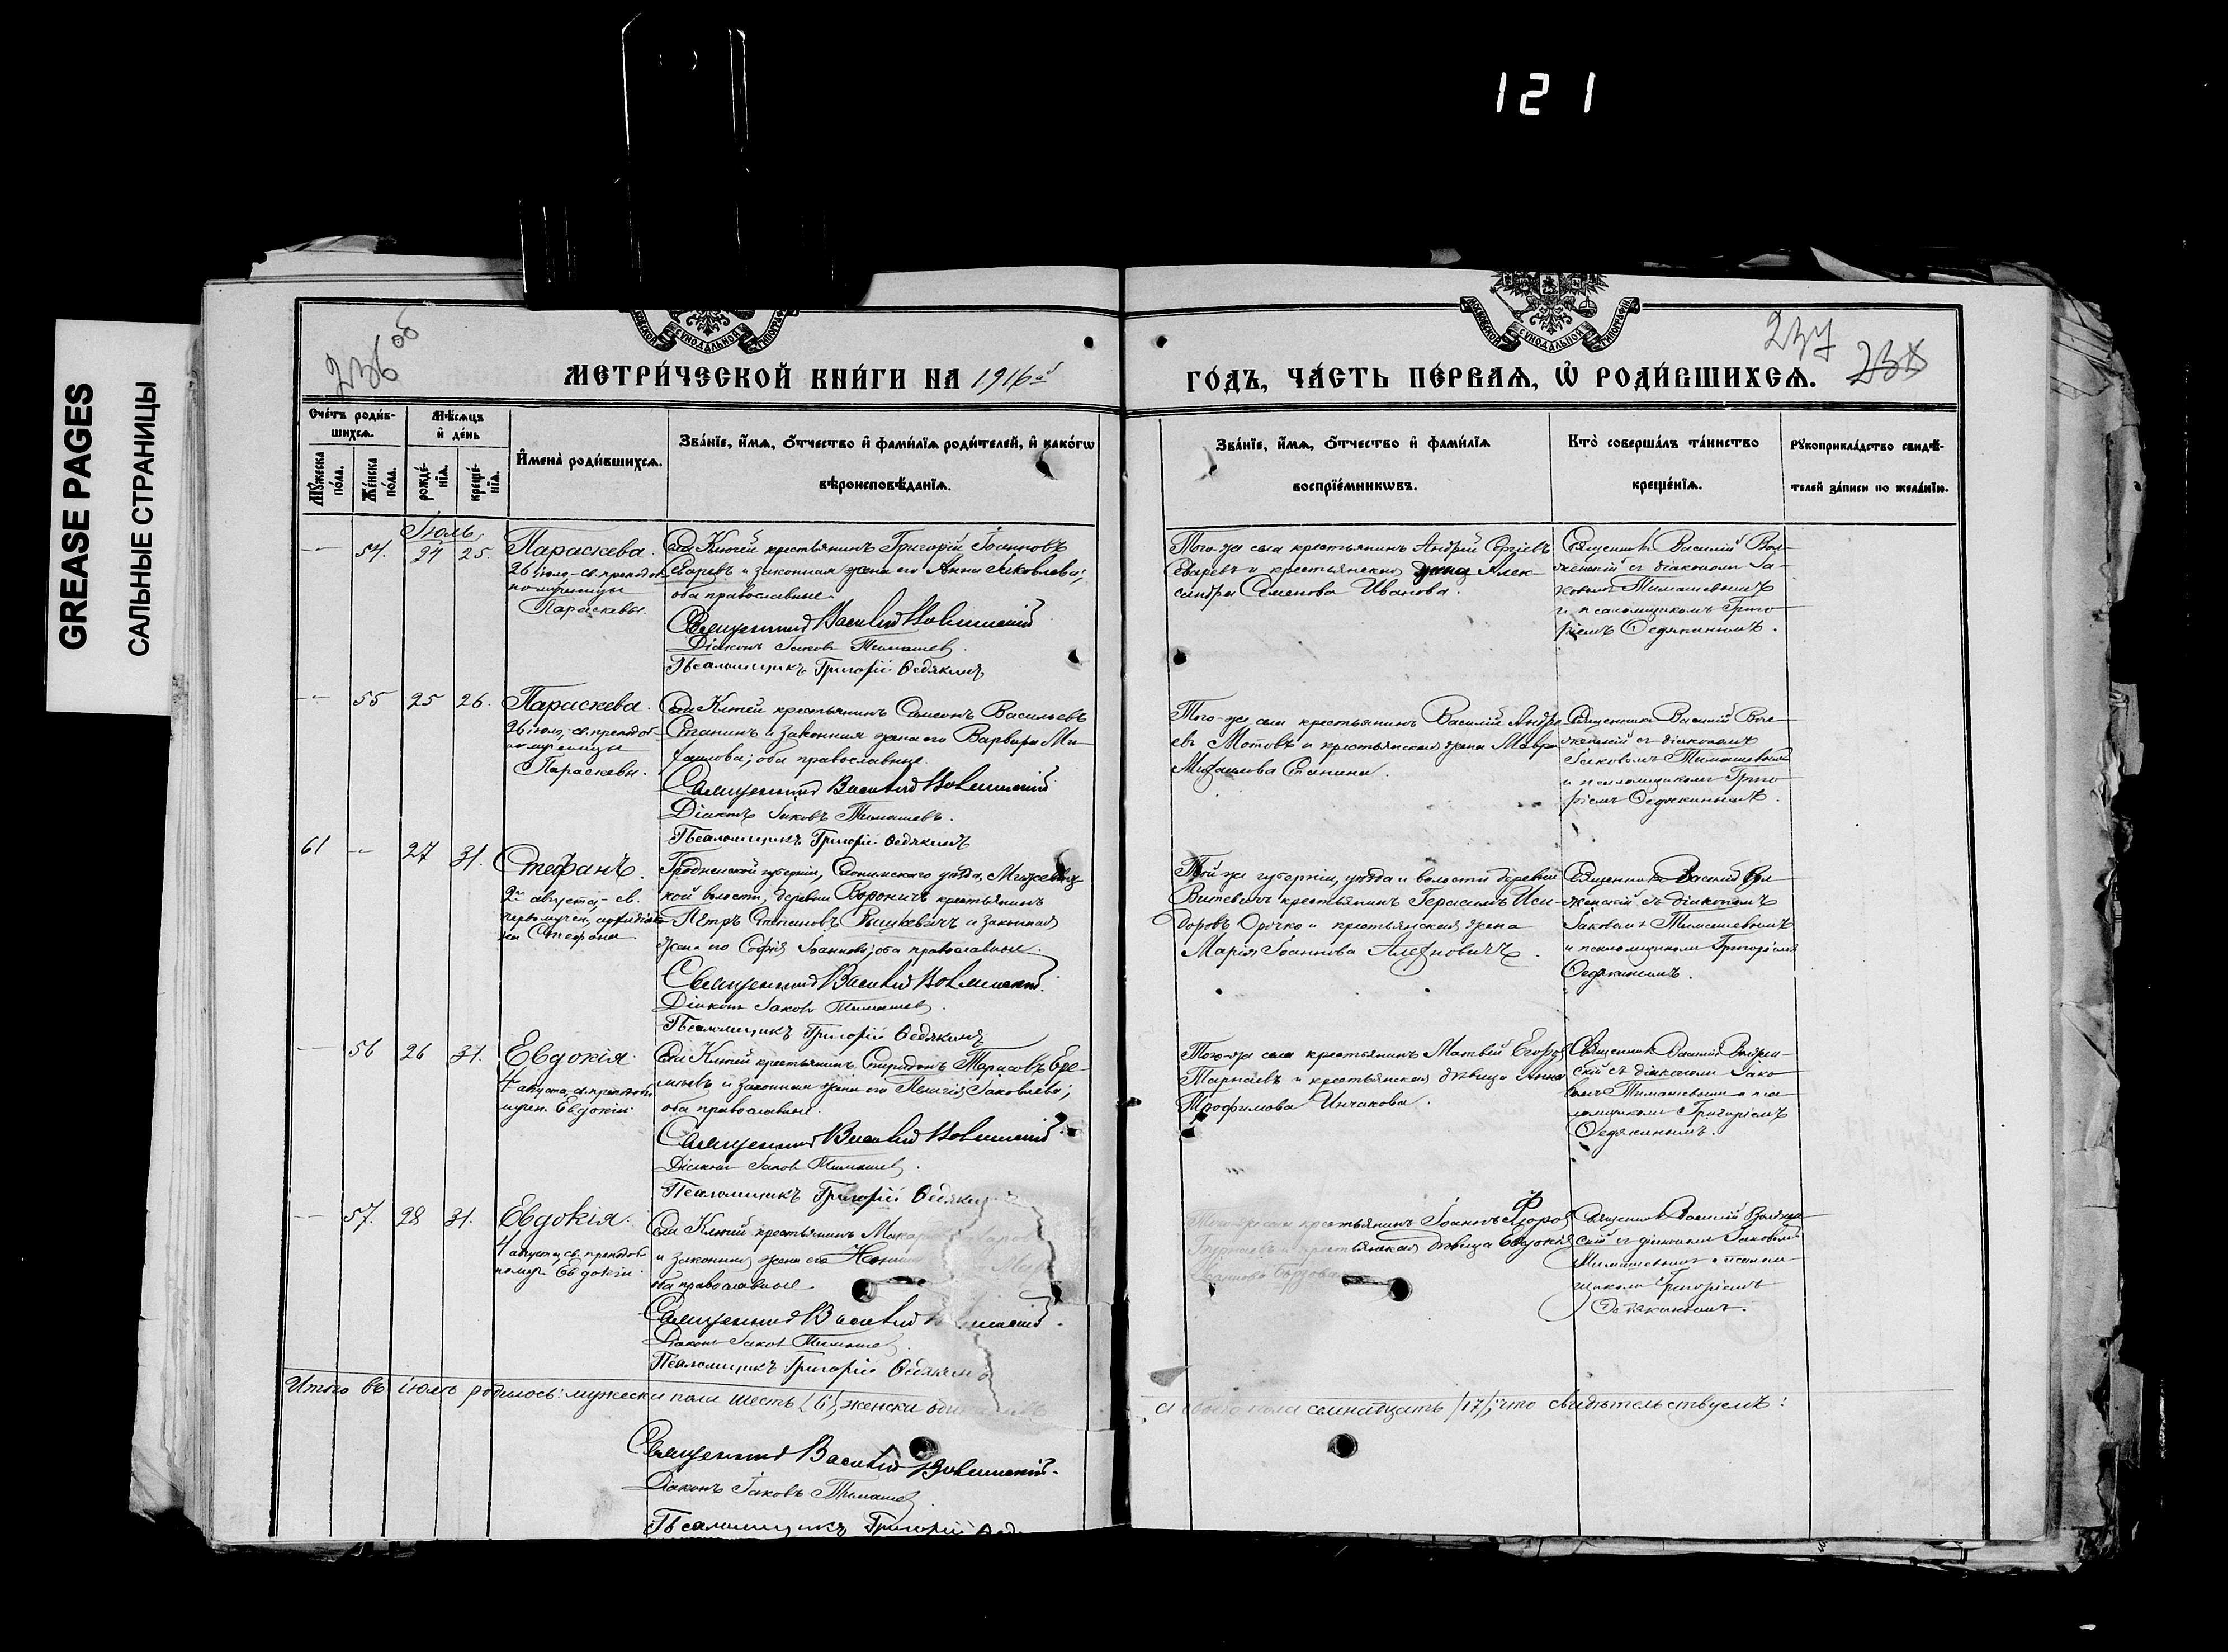 121
GREASE PAGES
САЛЬНЫЕ СТРАНИЦЫ
236 об
237
МЕТРИ́ЧЕСКОЙ КНИ́ГИ НА 1916й
ГО́ДЪ, ЧА́СТЬ ПЕ́РВАѦ, Ѡ҆ РОДИ́ВШИХСѦ.
Сче́тъ роди́в-
шихсѧ.
Мѣ́сѧцъ
и҆ де́нь
Мꙋ́жеска по́ла.
Же́нска по́ла.
рожде́-
нїѧ.
креще́-
нїѧ.
И҆мена̀ роди́вшихсѧ.
Зва́нїе, и҆́мѧ, ѻ҆́тчество и҆ фами́лїѧ роди́телей, и҆ како́гѡ
вѣроисповѣ́данїѧ.
Зва́нїе, и҆́мѧ, ѻ҆́тчество и҆ фами́лїѧ
воспрїе́мникѡвъ.
Кто̀ соверша́лъ та́инство
креще́нїѧ.
Рꙋкоприкла́дство свидѣ́-
телей за́писи по жела́нїю.
Іюль
54. 24 25. Параскева.
26 іюля св. преподоб
номученицы
Параскевы.
села Ключей крестьянинъ Григорій Іоанновъ
и законная жена его Анна Іаковлева;
оба православные.
Священникъ Василій
Діаконъ Іаковъ Тимашев.
Псаломщикъ Григорій Федякинъ
Того-же села крестьянинъ Андрей Сергіевъ
и крестьянская Алек-
сандра Семенова Иванова.
Священникъ Василій
женскій съ діакономъ Іа-
ковомъ Тимашевымъ
и псаломщикомъ Григо-
ріемъ Федякинымъ.
55 25 26. Параскева.
26 іюля, св. преподоб-
номученицы
Параскевы.
села Ключей крестьянинъ Симеонъ Васильевъ
Станинъ и законная жена его Варвара Ми-
хаилова; оба православные.
Священникъ Василій
Діаконъ Іаковъ Тимашевъ.
Псаломщикъ Григорій Федякинъ
Того-же села крестьянинъ Василій Андре
евъ Мотовъ и крестьянская жена Мавра
Михаилова Станина.
Священникъ Василій
женскій съ діакономъ
Іаковомъ Тимашевымъ
и псаломщикомъ Григо-
ріемъ Федякинымъ.
61 27 31. Стефанъ.
2го августа св.
первомучен. архидіако-
на Стефана
Гродненской губерніи, Слонимскаго уѣзда,
кой волости, деревни Вороничъ крестьянинъ
Петръ Степановъ и законная
жена его Софія Іоаннова; оба православные.
Священникъ Василій
Діаконъ Іаковъ Тимашев.
Псаломщикъ Григорій Федякинъ
Той-же губерніи, уѣзда и волости деревни
крестьянинъ Герасимъ Иси-
доровъ и крестьянская жена
Марія Іоаннова
Священникъ Василій
женскій съ діакономъ
Іаковомъ Тимашевымъ
и псаломщикомъ Григоріемъ
Федякинымъ.
56 26 31. Евдокія.
4 августа, св. преподобно
мучен. Евдокіи.
села Ключей крестьянинъ Спиридонъ Тарасовъ Ере-
мѣевъ и законная жена его Пелагія Іаковлева;
оба православные.
Священникъ Василій
Діаконъ Іаков Тимашев.
Псаломщикъ Григорій Федякин
Того-же села крестьянинъ Матвѣй Егоров
и крестьянская дѣвица Анна
Трофимова Инчакова.
Священникъ Василій
скій съ діакономъ Іако-
вомъ Тимашевымъ и пса-
ломщикомъ Григоріемъ
Федякинымъ.
57. 28 31. Евдокія.
4 августа, св. преподобно
мучен. Евдокіи
села Ключей крестьянинъ
и законная жена его
оба православные
Священникъ Василій
Діаконъ Іаков Тимашев
Псаломщикъ Григорій
крестьянинъ Іоаннъ
крестьянская дѣвица Евдокія
Священникъ Василій
скій съ діакономъ Іаковомъ
Тимашевымъ и псалом
щикомъ Григоріемъ
Федякинымъ.
Итого въ іюлѣ родилось: мужеска пола шесть /6/, женска
а обоего пола семнадцать /17/, что свидѣтельствуемъ:
Священникъ Василій
Діаконъ Іаковъ Тимашев
Псаломщикъ Григорій